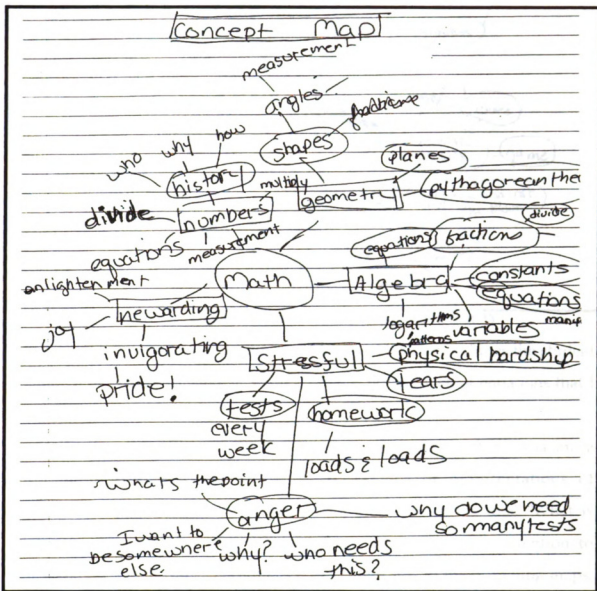 Concept Map
measurement
angles
shapes
who
why
how
history
planes
multiply
geometry
pythagorean the
divide
numbers
divide
equations
measurement
equations
fractions
enlightenment
Math
Algebra
constants
equations
joy
rewarding
logarithms
variables
manip
patterns
invigorating
Stressful
physical hardship
pride!
tears
tests
homework
every
week
loads & loads
whats the point
anger
why do we need
so many tests
I want to
be somewhere
else
why?
who needs
this?